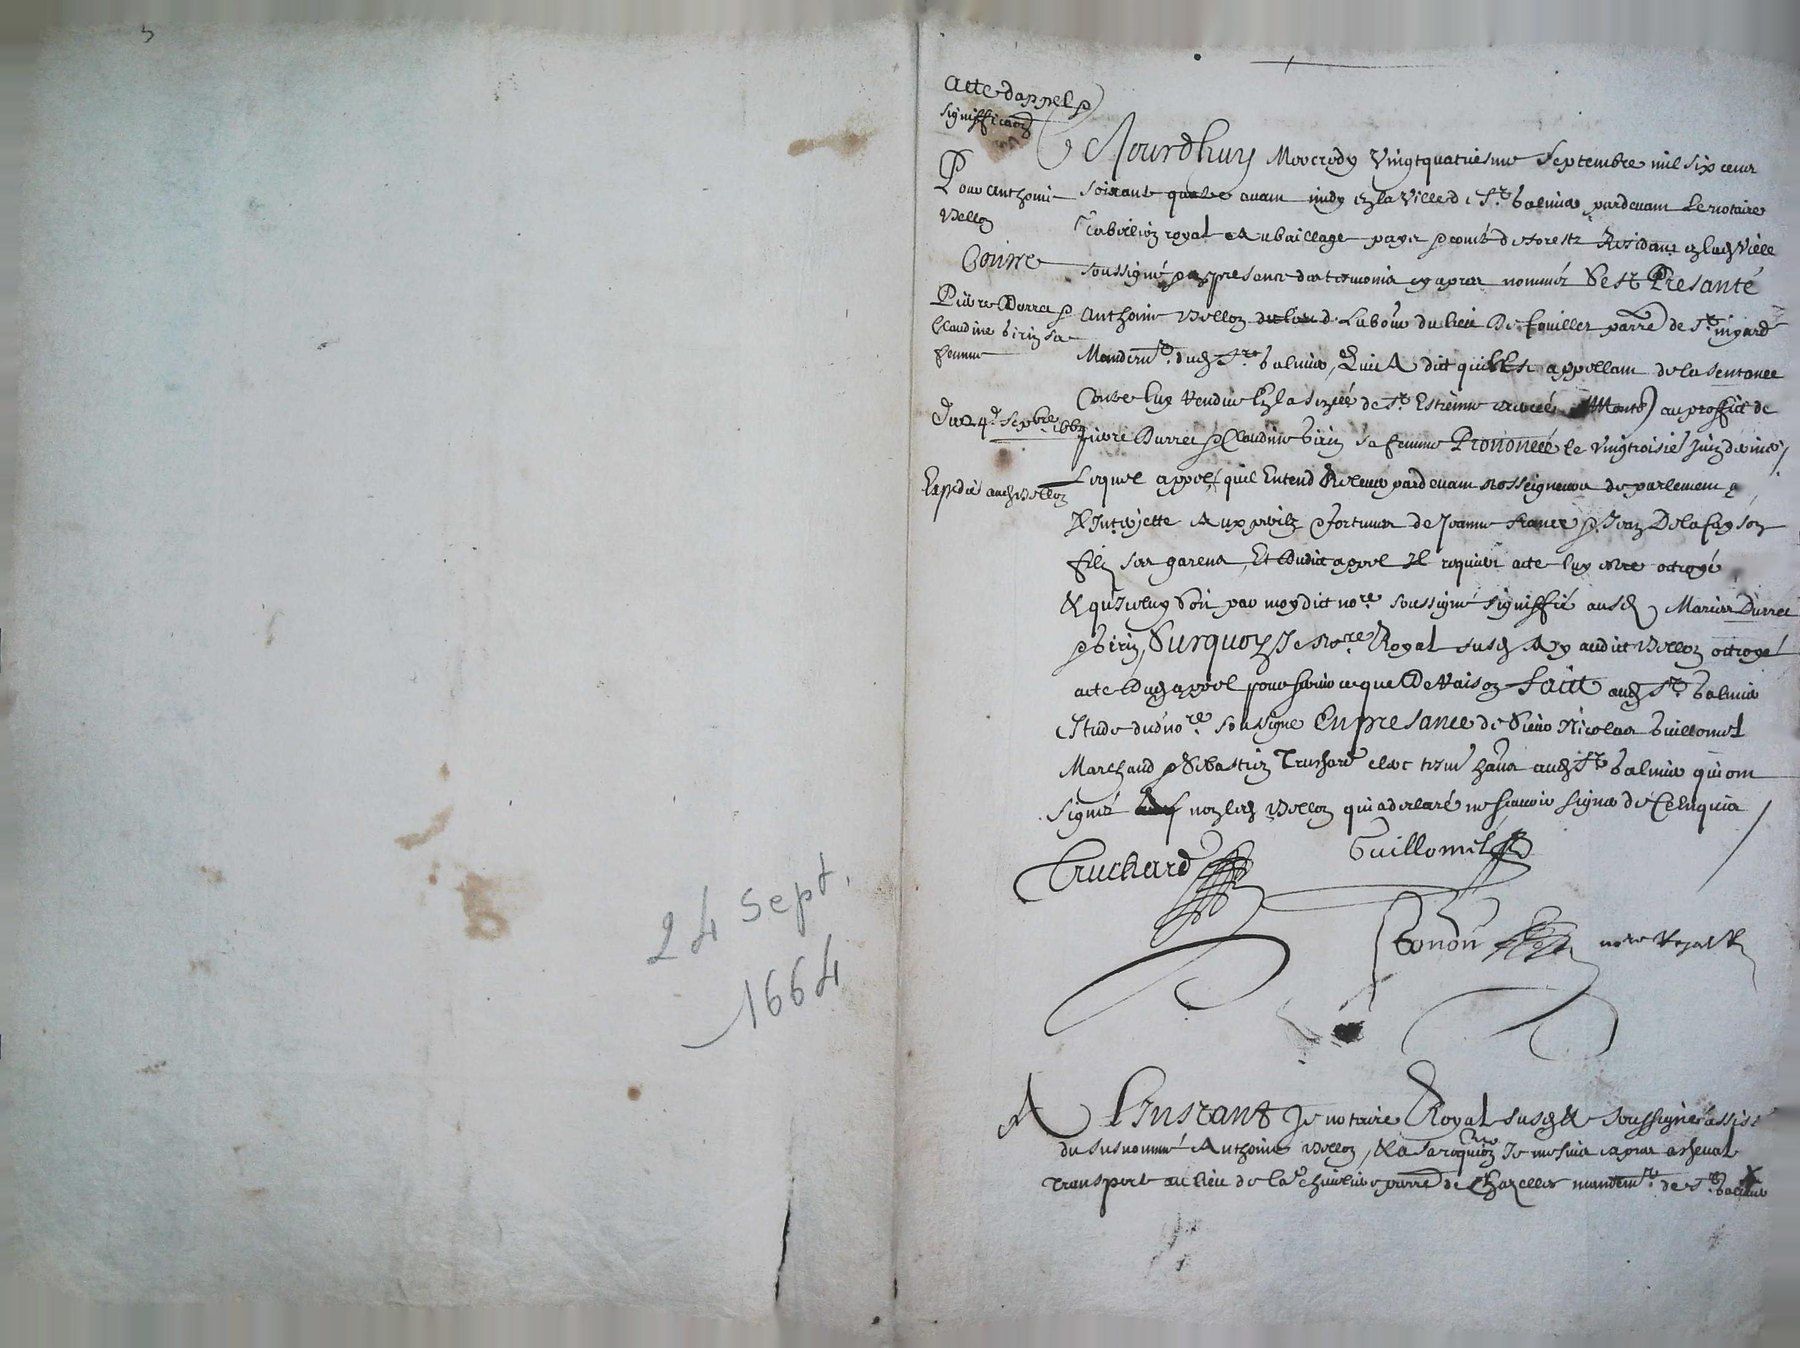 24 sept.
1664
Acte dappel &
signifficaon
Pour Anthoine
Vellon
Contre
Pierre Durret &
Claudine Girin sa
femme
Du 24e sepbre 1664
Expedié audt Vellon
Ce Jourdhuy Mercredy Vingtquatriesme Septembre mil six cent
soixante quatre avant midy en la Ville de St Galmier pardevant Le notaire
Tabellion royal Au bailliage payis & comté de forestz Residant en lade Ville
soussigné & en presance des tesmoins cy apres nommés Sest Presanté
Anthoine Vellon du lieu de
Mandemt. dudt St Galmier, Qui A dit quil est appellant de la sentance
Contre luy Rendue En la de St Estienne au proffict de
pierre Durret & Claudine Girin sa femme Prononcée le vingtroisie Juin dernier
Lequel appel quil Entend Relever pardevant Nosseigneurs de parlement
Il Interjette Aux perilz & fortunes de Jeanne france & Jean Delafay son
filz ses garens, Et dudict appel Il requiert acte luy estre octroyé
& qu Iceluy soit par moydict nore soussigné signiffié ausd Mariés Durret
& Girin, Surquoy Je Nore Royal susdt Ay audict Vellon octroyé
acte dudt appel pour servir ce que De Raison faict audt St Galmier
Estude dudt nore soussigné En presance de Sieur Nicolas Guillomet
Marchand & Sebastien Truchard clerc audt St Galmier qui ont
signé non ledt Vellon qui a declaré ne scavoir signer de ce Enquis
Truchard
Guillomet
nore Royal
A Linstant Je notaire Royal susdt & soussigné assisté
du susnommé Anthoine Vellon, & a sa requion Je me suis expres a cheval
Transporté au lieu de la parre de Chazelles mandemt. de St Galmier